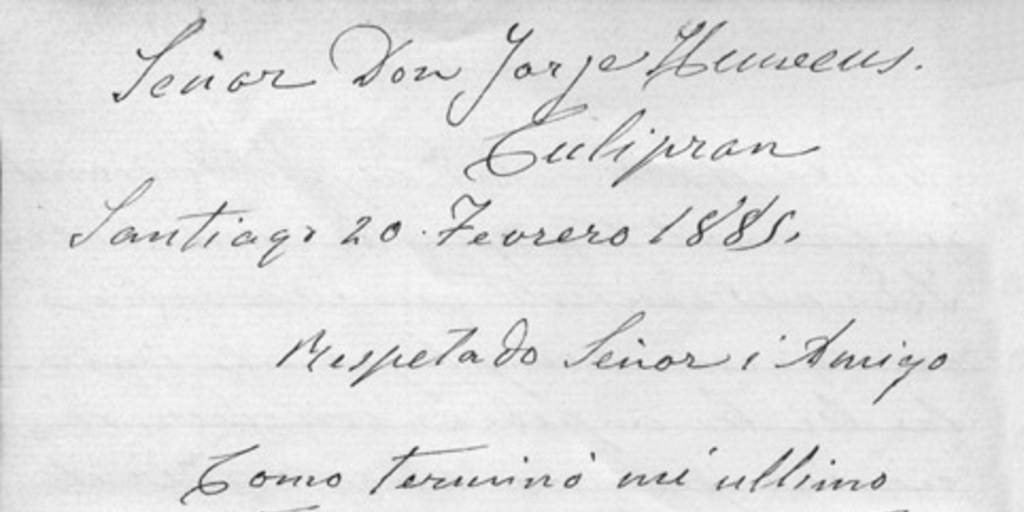 Señor Don Jorje Huneeus.
Culipran
Santiago 20 Fevrero 1885.
Respetado Señor i Amigo
Como terminó mi ultimo